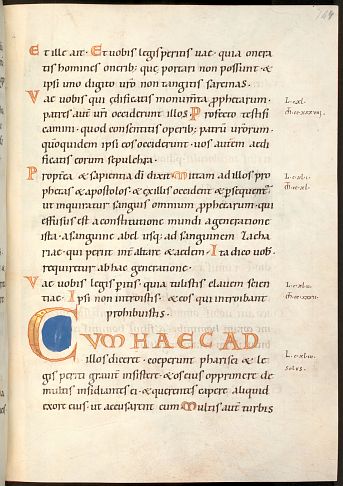 Et ille ait · Et uobis legisperitis uae · quia onera
tis homines onerib; que portari non possunt · &
ipsi uno digito uro non tangitis sarcinas ·
Vae uobis qui edificatis monumta prophetarum ·
patres aut uri occiderunt illos · Profecto testifi
camini · quod consentitis operib; patru urorum ·
quo quidem ipsi eos occiderunt · uos autem aedi
ficatis eorum sepulchra ·
Propterea & sapientia di dixit · Mittam ad illos pro
phetas & apostolos · & ex illis occident & persequent
ut inquiratur sanguis omnium prophetarum · qui
effusus est a constitutione mundi a generatione
ista · a sanguine abel usq; ad sanguinem zacha
riae · qui periit int altare & aedem · Ita dico uob ·
requiretur ab hac generatione ·
Vae uobis legis pitis · quia tulistis clauem scien
tiae · Ipsi non introistis · & eos qui introibant
prohibuistis ·
CUM HAEC AD
illos diceret · coeperunt pharisei & le
gis periti grauit insistere · & os eius opprimere de
multis insidiantes ei · & querentes capere aliquid
ex ore eius · ut accusarent eum · Multis aut turbis